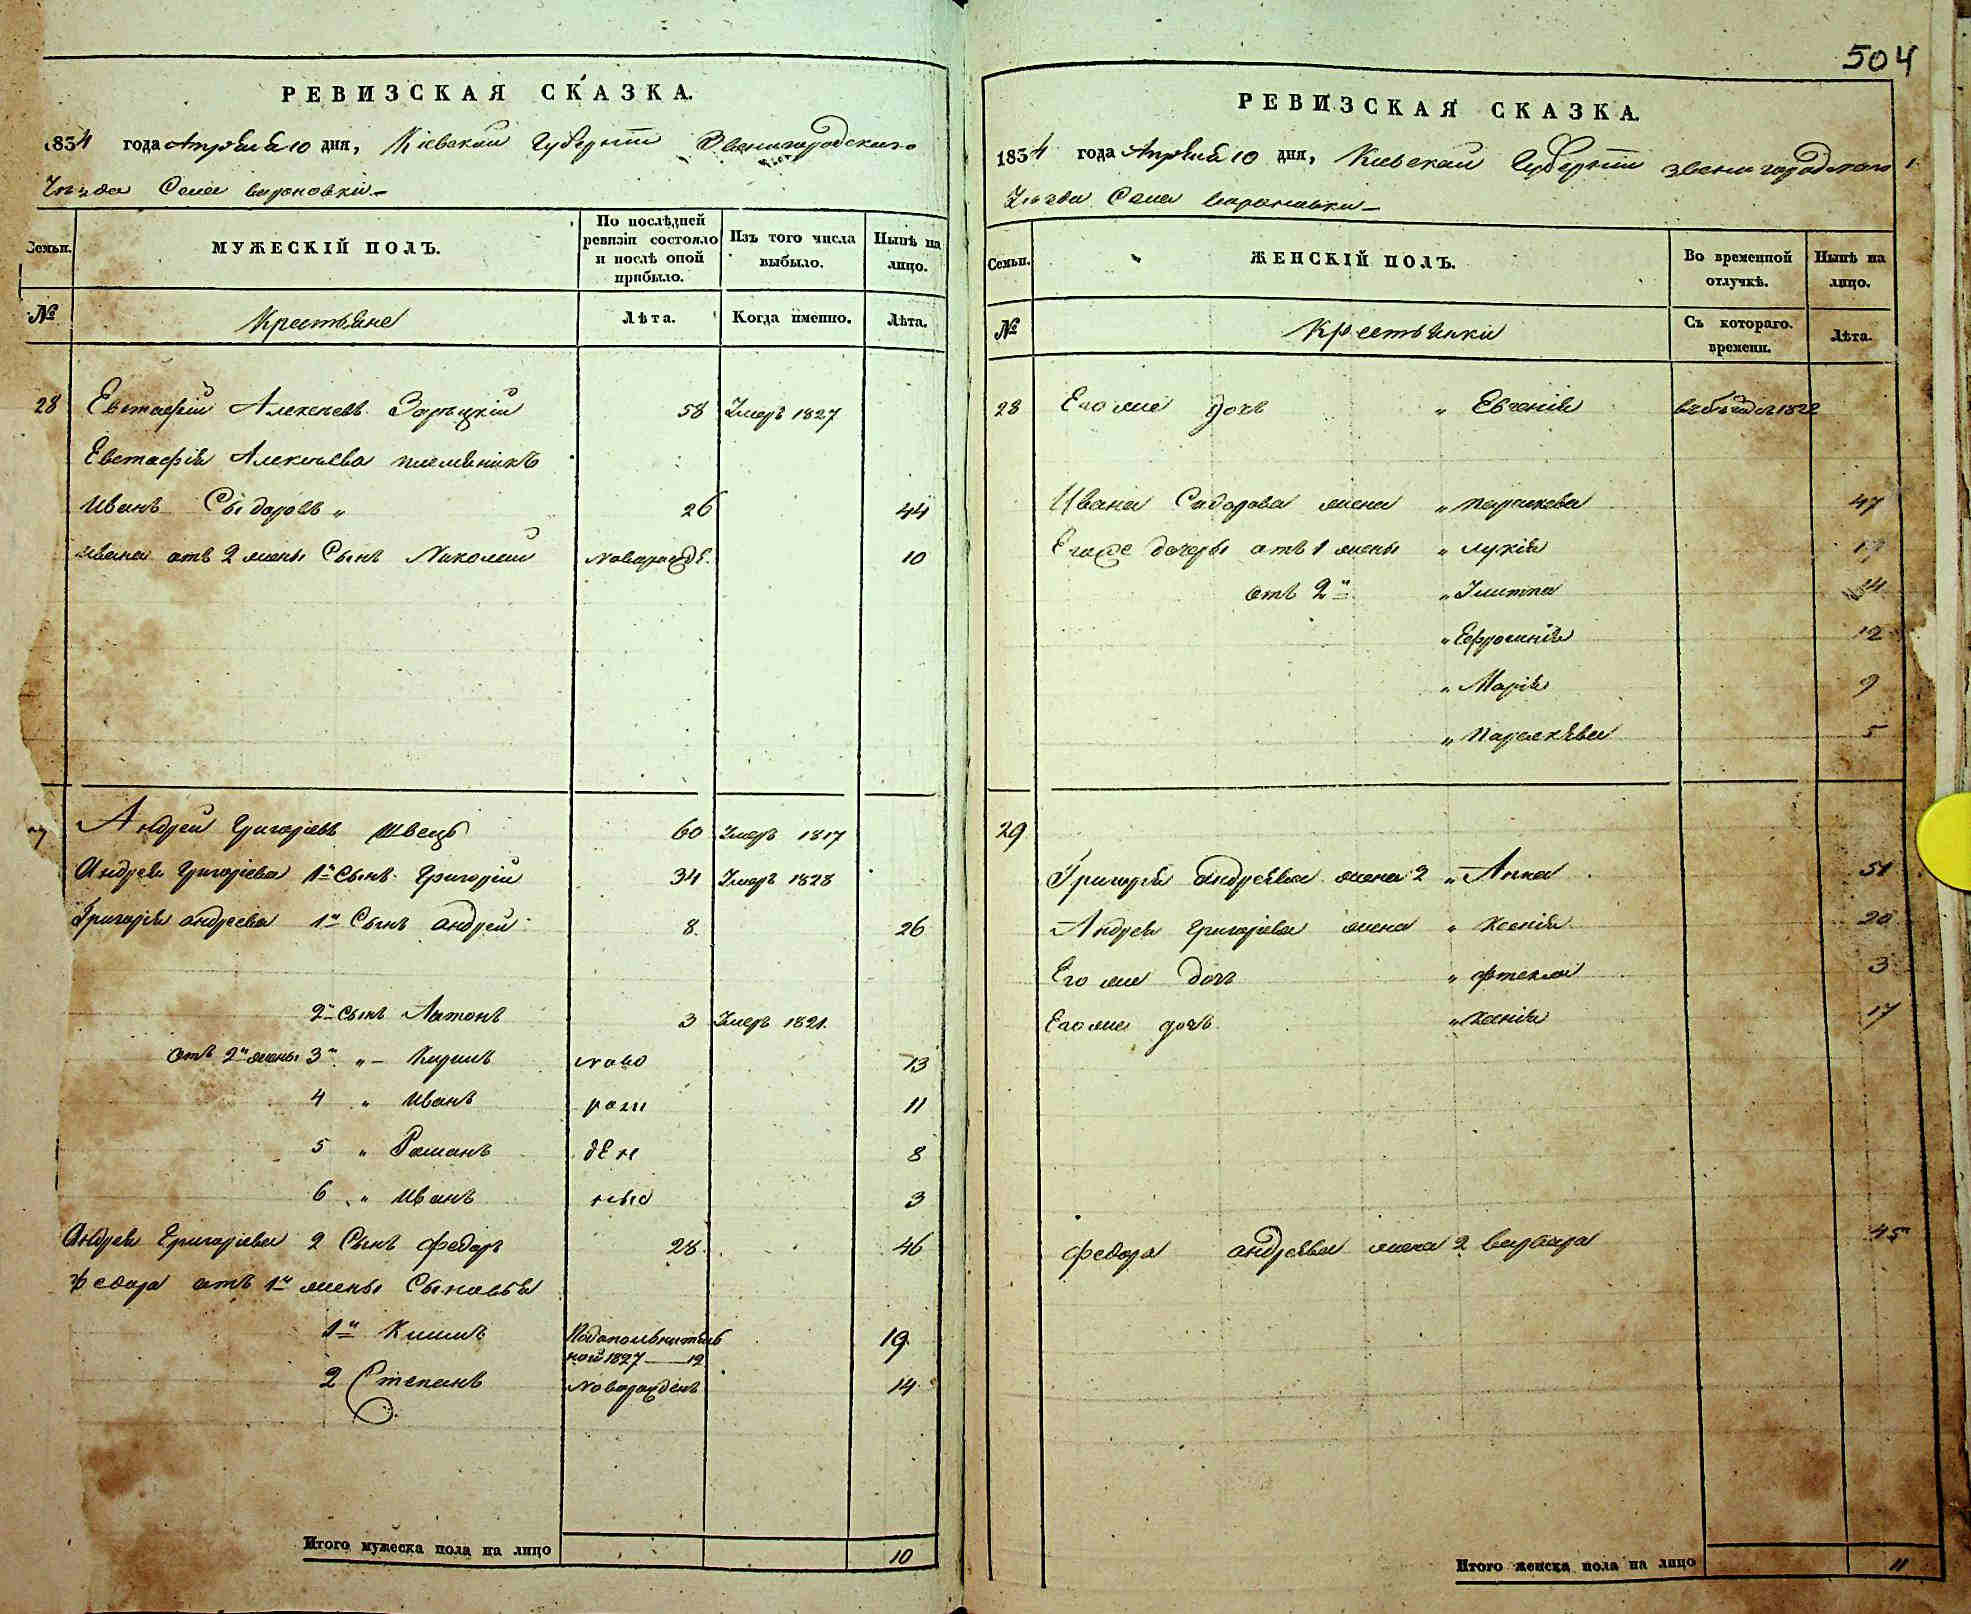 504
РЕВИЗСКАЯ СКАЗКА.
1834 года Апреля 10 дня, Кіевской Губерніи Звенигородскаго
Уезда Села
№ Семьи.
МУЖЕСКІЙ ПОЛЪ.
По послѣдней ревизіи состояло и послѣ оной прибыло.
Изъ того числа выбыло.
Нынѣ на лицо.
Крестьяне
Лѣта.
Когда именно.
Лѣта.
28 Евстафій Алексѣевъ Зарѣцкій 58 Умеръ 1827
Евстафія Алексѣева племеникъ
Иванъ Сыдоровъ „ 26 44
Ивана отъ 2 жены Сынъ Николай новорожде. 10
Андрей Григоріевъ Швецъ 60 Умеръ 1817
Андрея Григоріева 1й Сынъ Григорій 34 Умеръ 1828
Григорія Андреева 1й Сынъ Андрей 8 26
2й сынъ Антонъ 3 Умеръ 1821.
отъ 2й жены 3й „ Кирилъ ново 13
4 „ Иванъ рож 11
5 „ Романъ ден 8
6 „ Иванъ ные 3
Андрея Григоріева 2 Сынъ Федоръ 28 46
Федора отъ 1й жены Сыновья
1й Климъ
ной 1827 — 12 19
2 Степанъ Новорожденъ 14
Итого мужеска пола на лицо 10
РЕВИЗСКАЯ СКАЗКА.
1834 года Апреля 10 дня, Кіевской Губерніи Звенигородскаго
Уезда Села
Семьи. №
ЖЕНСКІЙ ПОЛЪ.
Во временной отлучкѣ.
Нынѣ на лицо.
Крестьянки
Съ котораго. времени.
Лѣта.
28 Его же дочь „ Евгенія 1822
Ивана Сидорова жена „ Параскева 47
Его же дочеры отъ 1 жены „ Лукія
отъ 2й „ Улита
„ Ефросинія 12
„ Марія 9
„ Параскева 5
29
Григорія Андреева жена 2 „ Анна 51
Андрея Григоріева жена „ Ксенія 20
Его же дочь „ Фтекла 3
Его же дочь „ Ксенія 17
Федора Андреева жена 2 Варвара 45
Итого женска пола на лицо 11